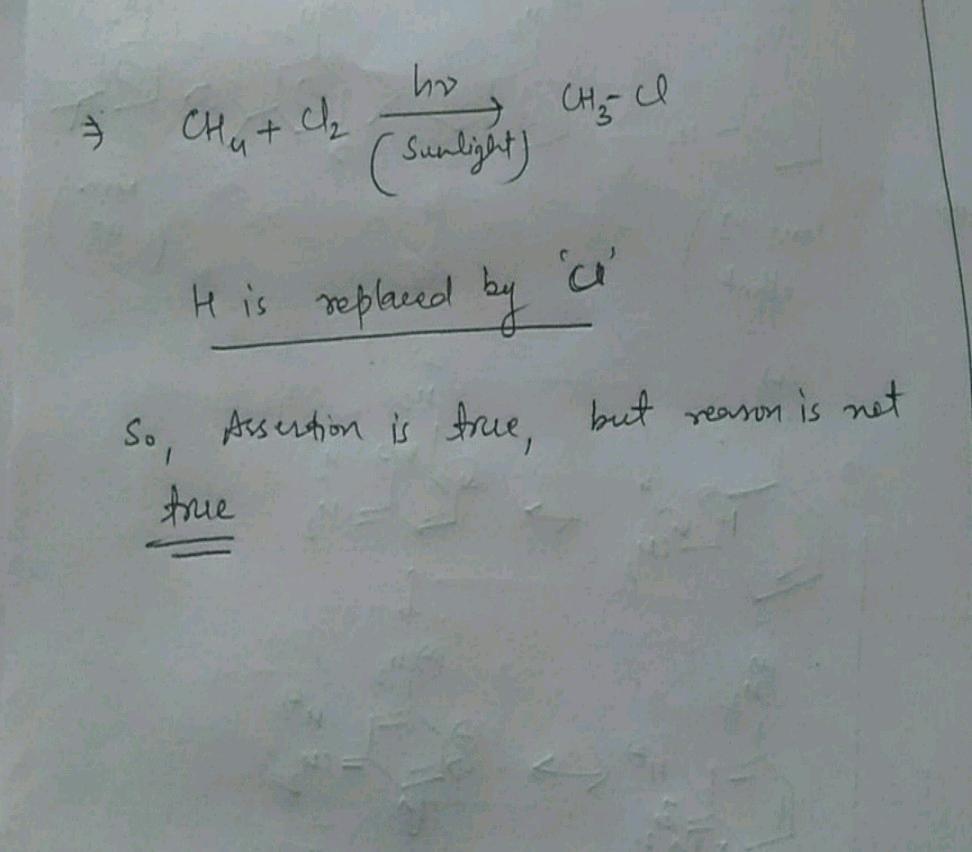 ⇒ CH₄ + Cl₂ hν → CH₃-Cl
(Sunlight)
H is replaced by 'Cl'
So, Assertion is true, but reason is not
true